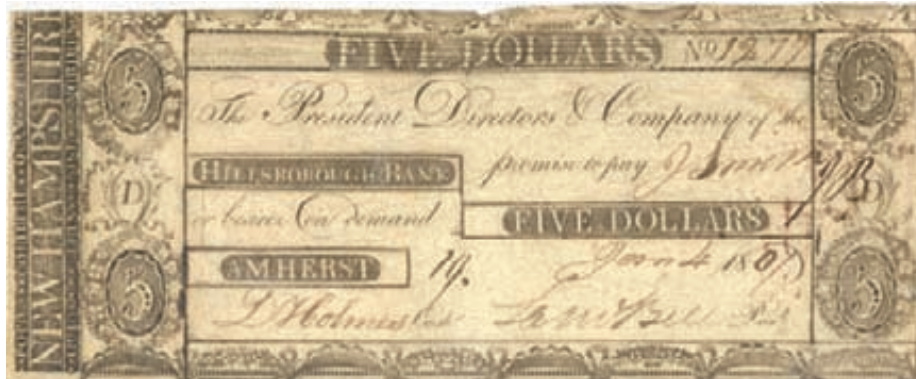 NEW HAMPSHIRE
5 FIVE DOLLARS No 5
The President Directors & Company of the
HILLSBOROUGH BANK promise to pay
D D
or bearer on demand FIVE DOLLARS
AMHERST 19. Jan 1807
5 5
D Holmes Cash Saml Bell Pres